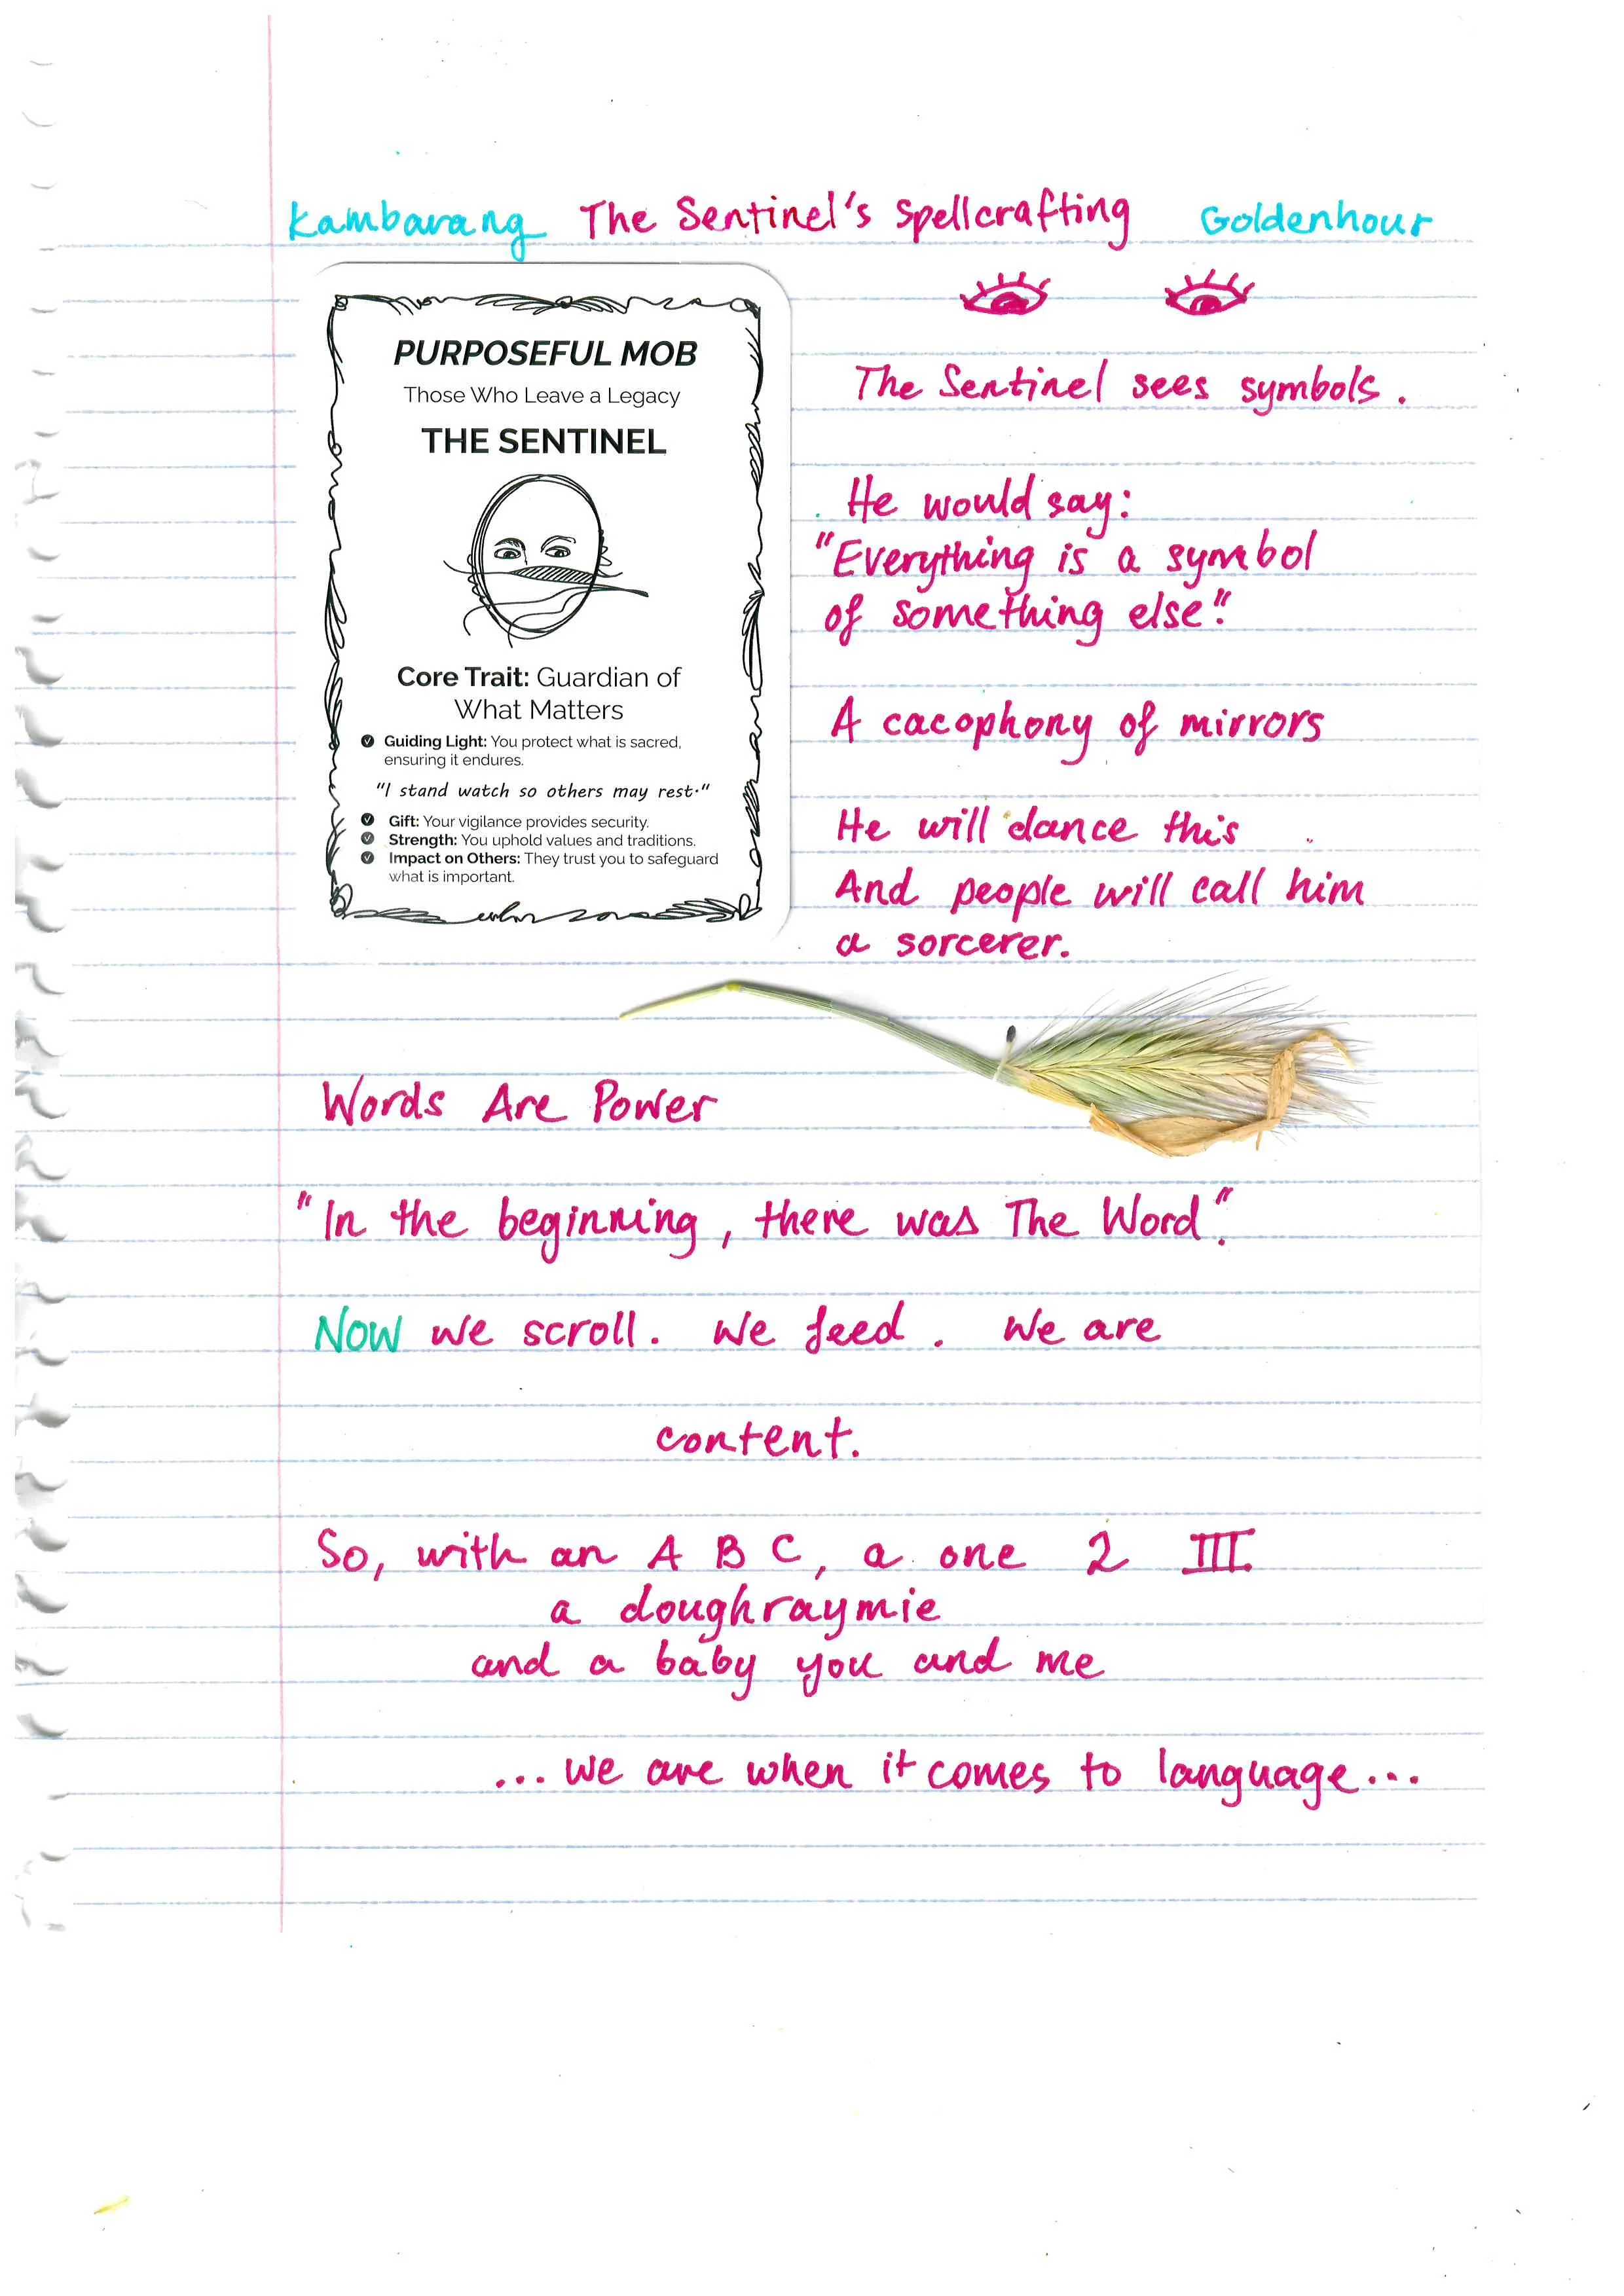 Kambarang The Sentinel's Spellcrafting Goldenhour
PURPOSEFUL MOB
Those Who Leave a Legacy
THE SENTINEL
Core Trait: Guardian of
What Matters
Guiding Light: You protect what is sacred,
ensuring it endures.
"I stand watch so others may rest."
Gift: Your vigilance provides security.
Strength: You uphold values and traditions.
Impact on Others: They trust you to safeguard
what is important.
The Sentinel sees symbols.
He would say:
"Everything is a symbol
of something else".
A cacophony of mirrors
He will dance this
And people will call him
a sorcerer.
Words Are Power
"In the beginning, there was The Word".
Now we scroll. We feed. We are
content.
So, with an A B C, a one 2 III
a doughraymie
and a baby you and me
...we are when it comes to language...